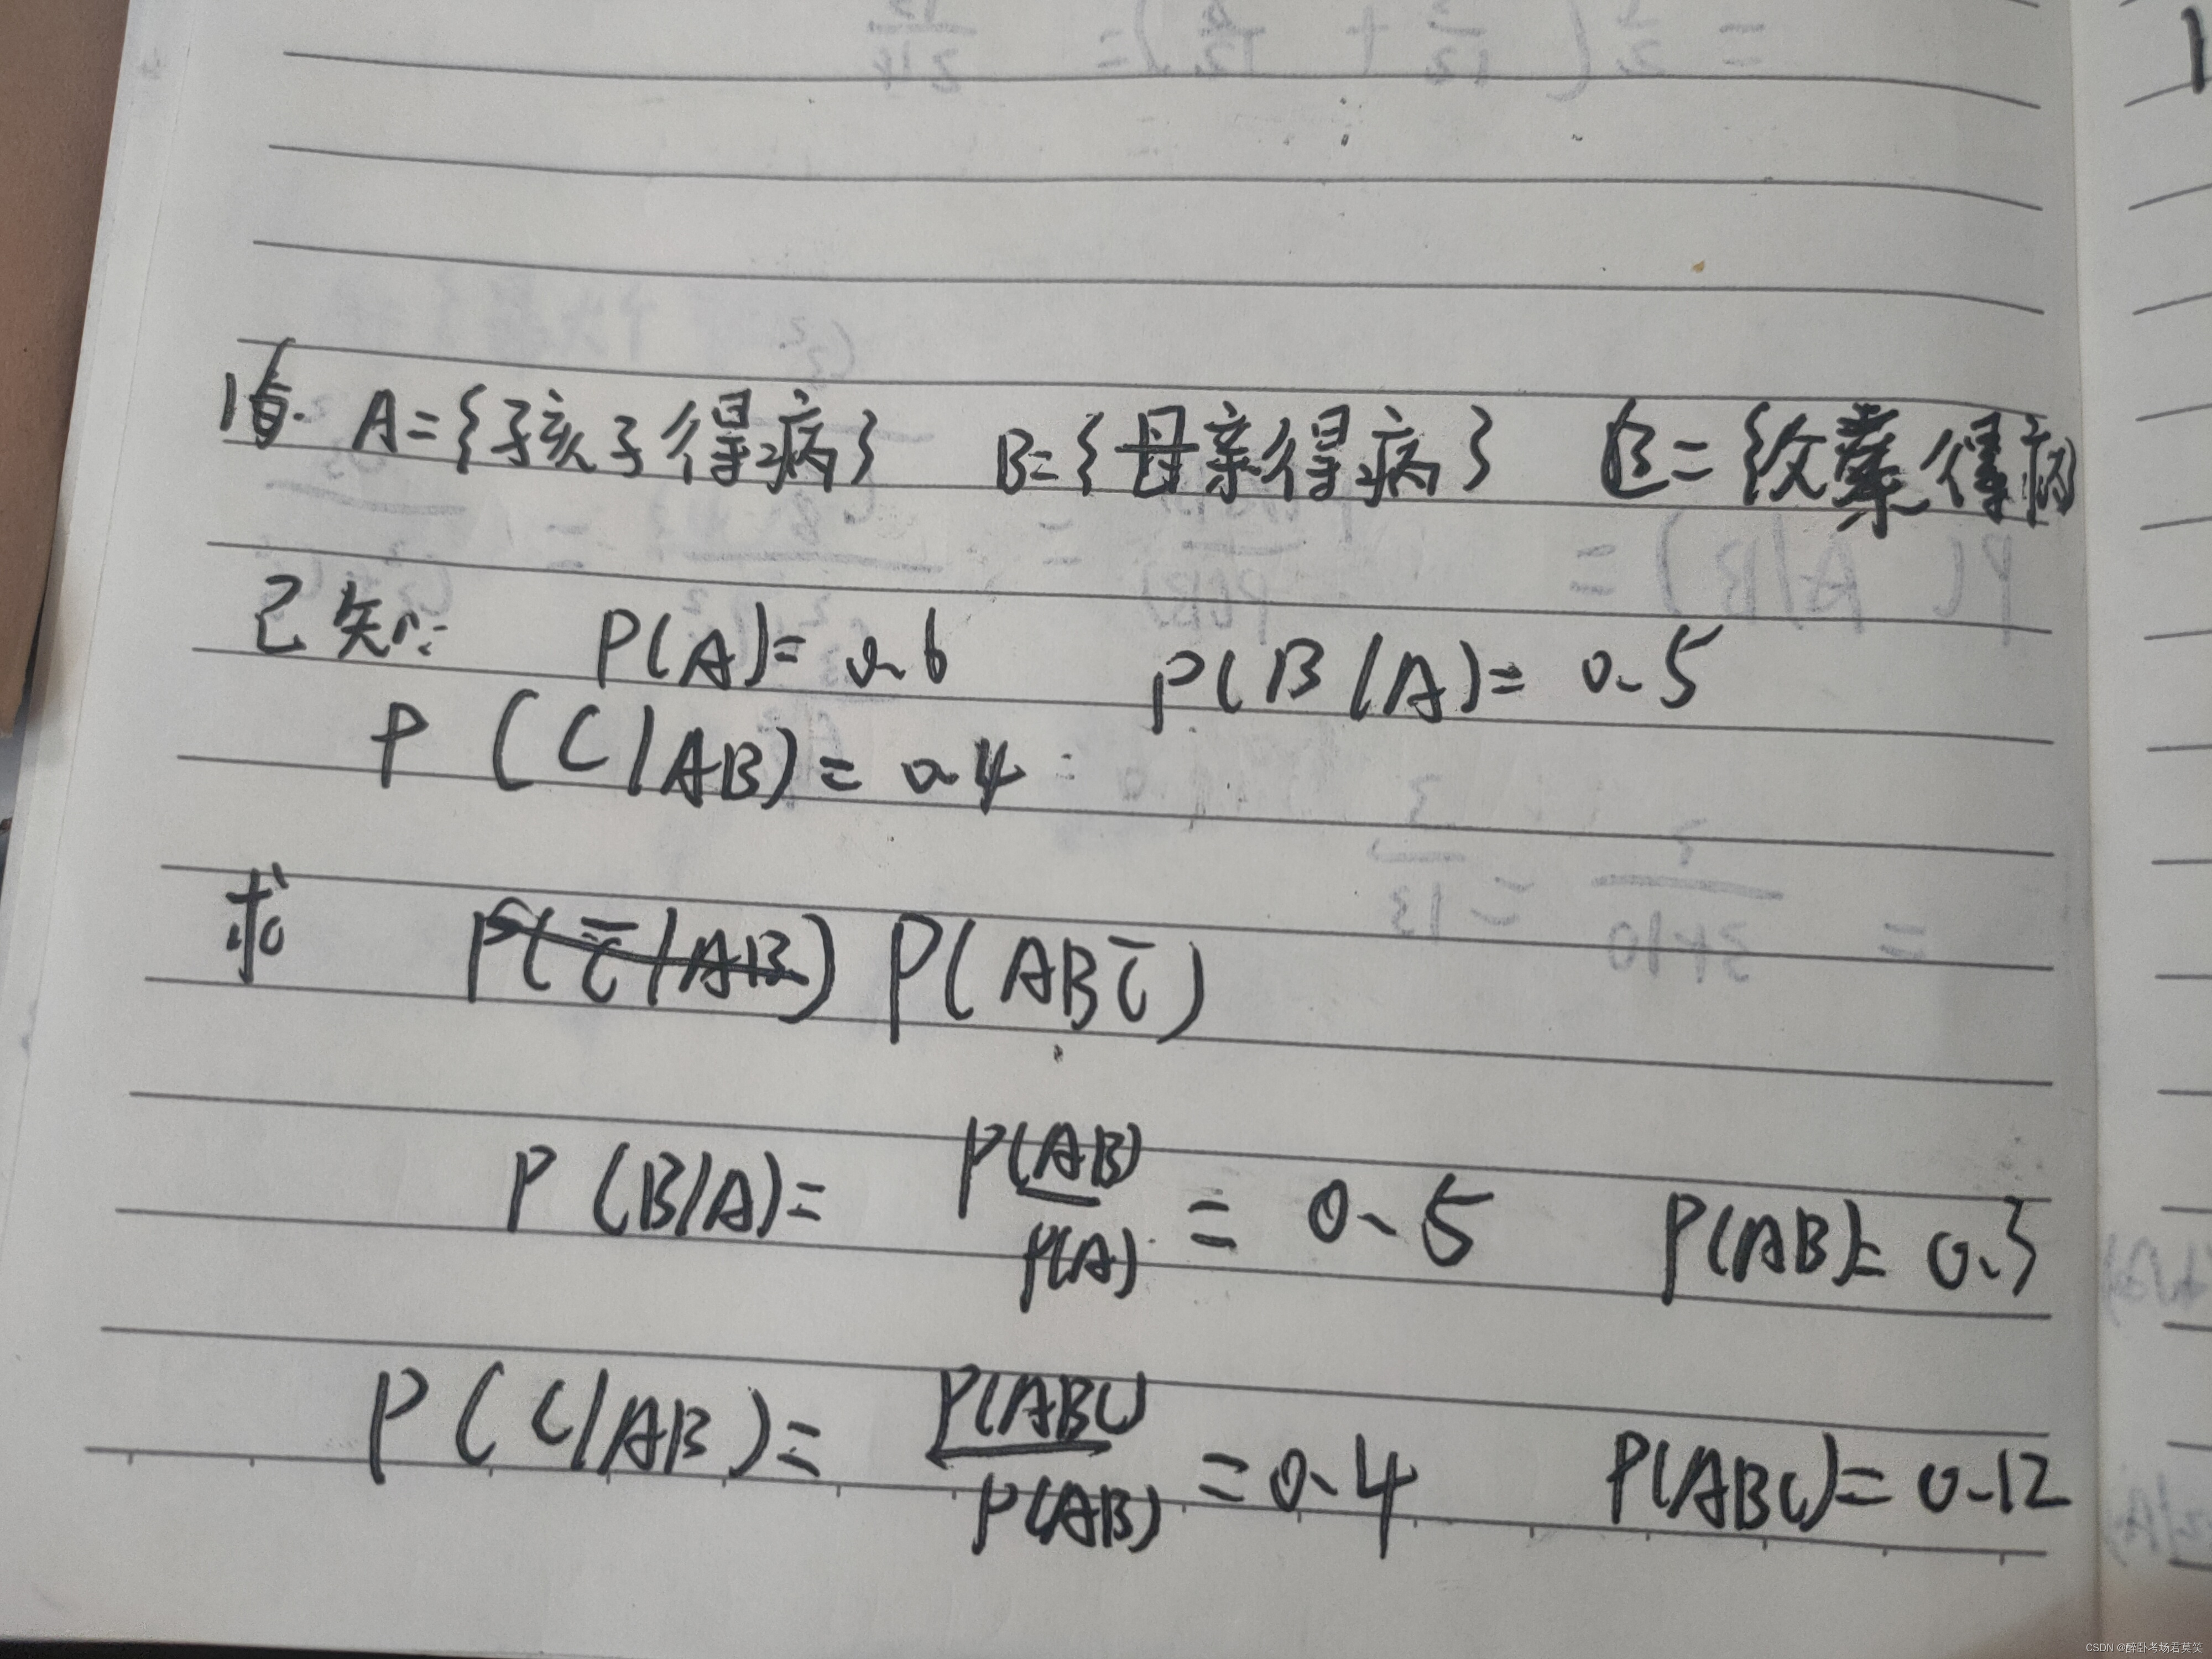 16. A={孩子得病} B={母亲得病} C={父亲得病}
已知: P(A)=0.6 P(B/A)=0.5
P(C/AB)=0.4
求 P(C̄/AB) P(ABC̄)
P(B/A)= P(AB)/P(A) =0.5 P(AB)=0.3
P(C/AB)= P(ABC)/P(AB) =0.4 P(ABC)=0.12
CSDN @醉卧考场君莫笑